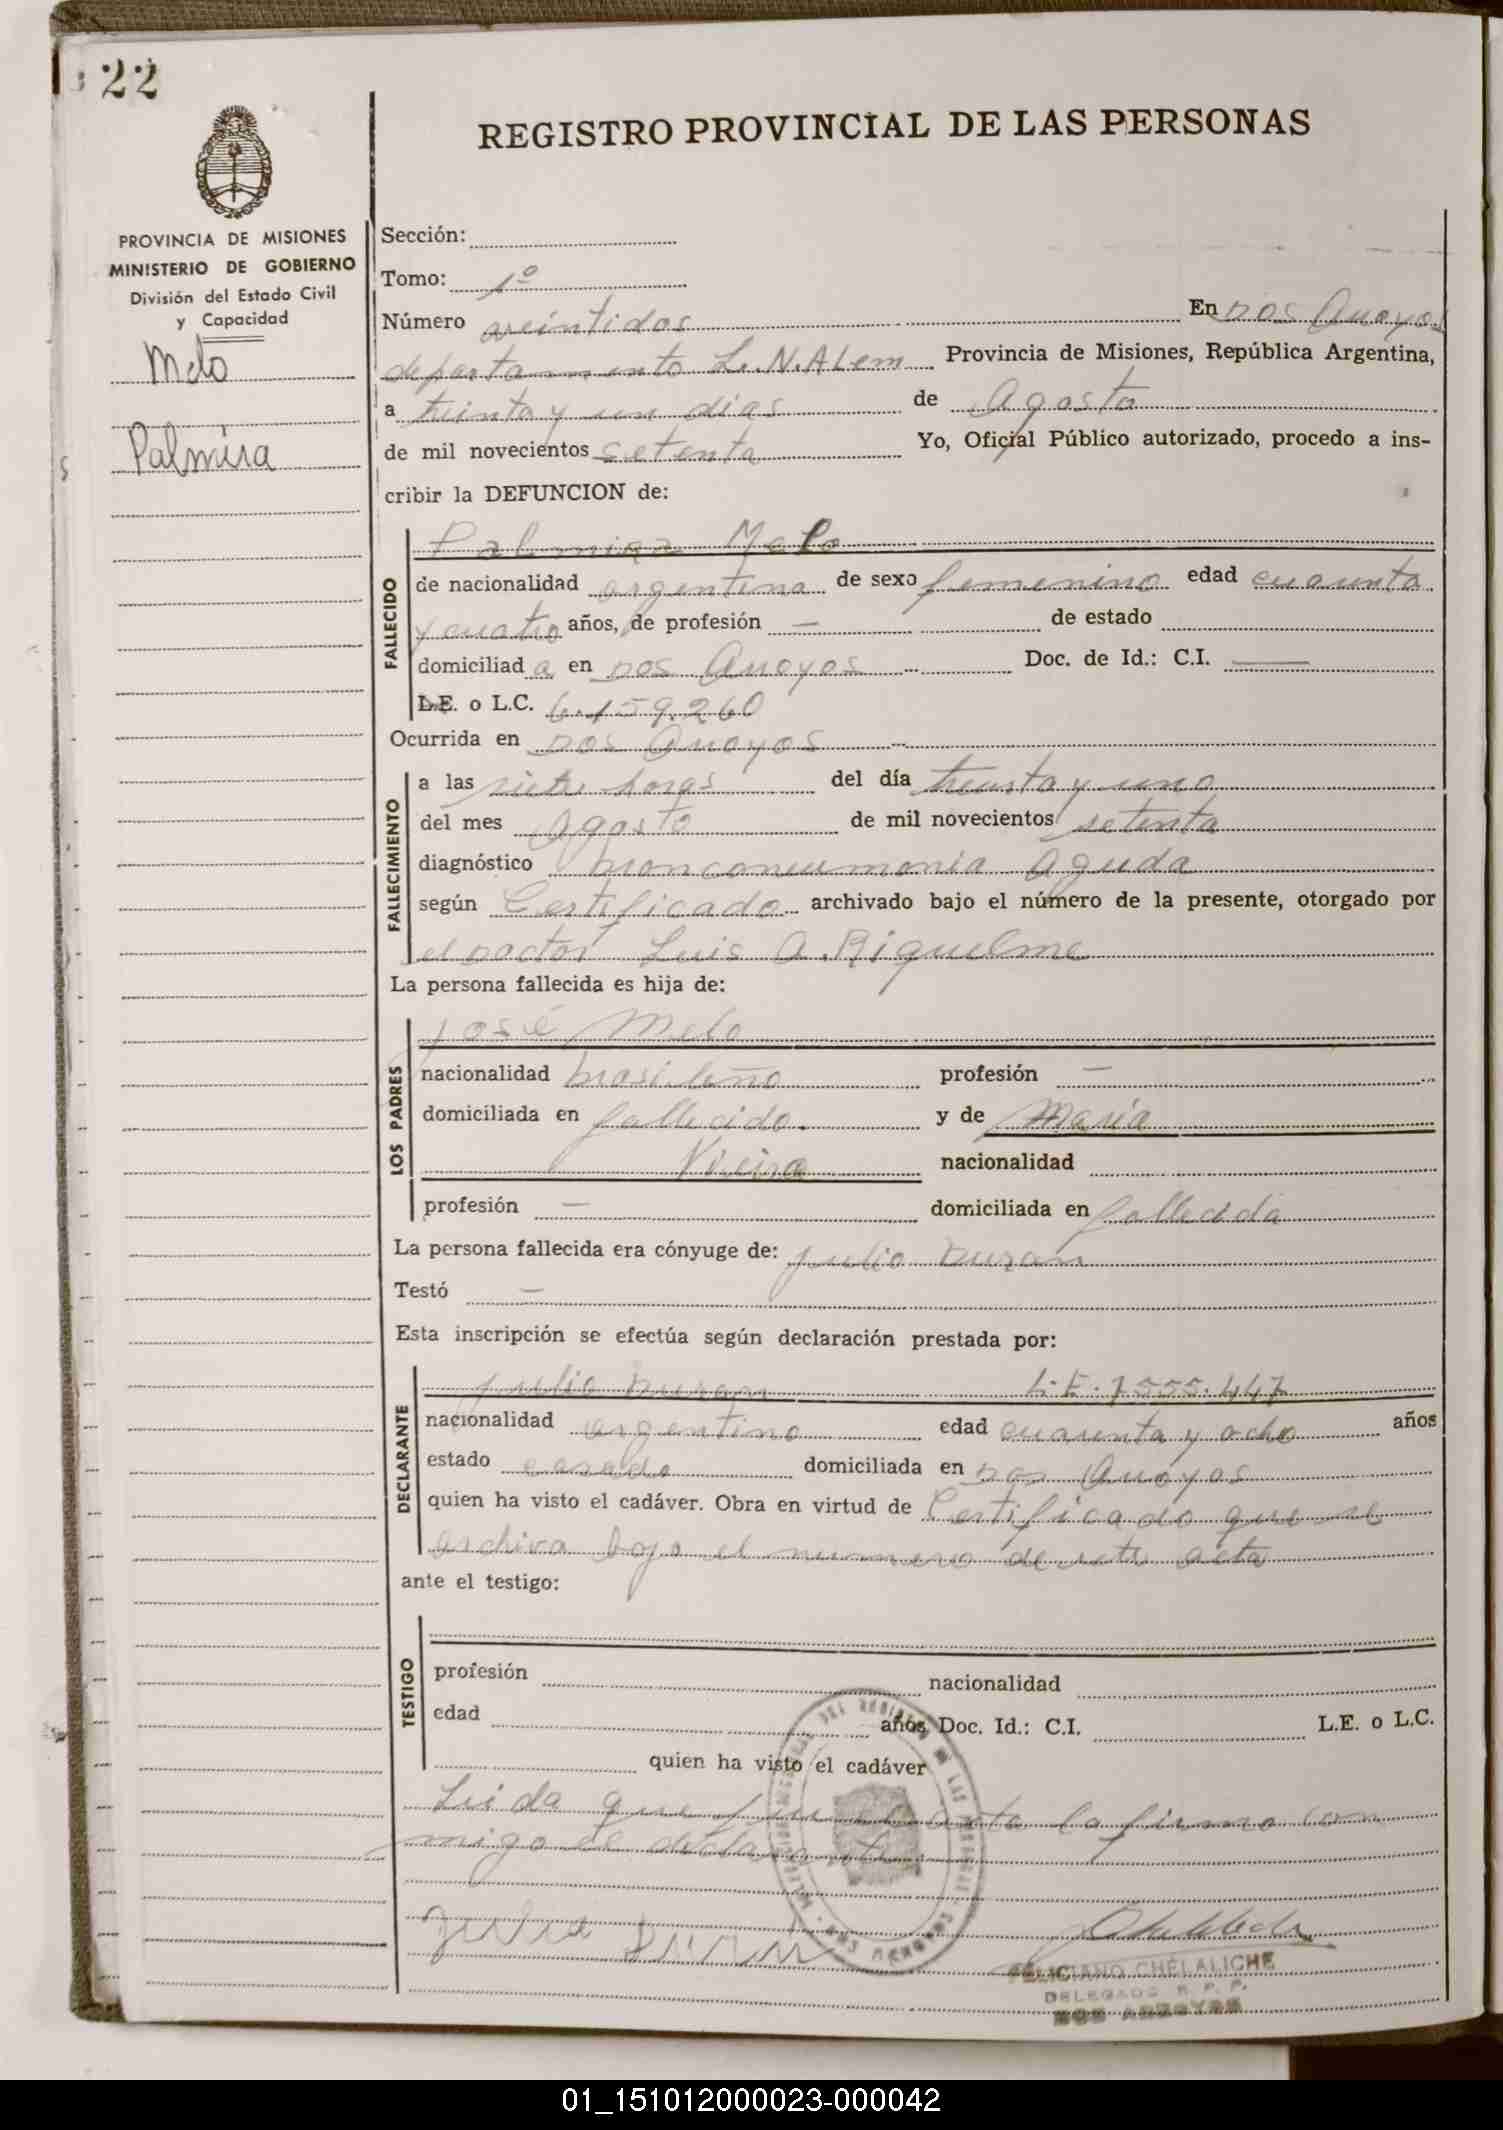 22
REGISTRO PROVINCIAL DE LAS PERSONAS
PROVINCIA DE MISIONES
MINISTERIO DE GOBIERNO
División del Estado Civil
y Capacidad
Melo
Palmira
Sección:
Tomo: 1º
Número veintidos En Dos Arroyos
departamento L.N.ALem Provincia de Misiones, República Argentina,
a treinta y un dias de Agosto
de mil novecientos setenta Yo, Oficial Público autorizado, procedo a ins-
cribir la DEFUNCION de:
FALLECIDO
Palmira Melo
de nacionalidad argentina de sexo femenino edad cuarenta
y cuatro años, de profesión — de estado
domiciliada en Dos Arroyos Doc. de Id.: C.I. —
L.E. o L.C. 6.159.260
Ocurrida en Dos Arroyos
FALLECIMIENTO
a las siete horas del día treinta y uno
del mes Agosto de mil novecientos setenta
diagnóstico bronconeumonia Aguda
según Certificado archivado bajo el número de la presente, otorgado por
el Doctor Luis A. Riquelme
La persona fallecida es hija de:
LOS PADRES
José Melo
nacionalidad brasileño profesión —
domiciliada en fallecido. y de Maria
Vieira nacionalidad
profesión — domiciliada en fallecida
La persona fallecida era cónyuge de: Julio Duran
Testó —
Esta inscripción se efectúa según declaración prestada por:
DECLARANTE
Julio Duran L.E. 7555.447
nacionalidad argentino edad cuarenta y ocho años
estado casado domiciliada en Dos Arroyos
quien ha visto el cadáver. Obra en virtud de Certificado que se
archiva bajo el numero de este acta
ante el testigo:
TESTIGO
profesión nacionalidad
edad años Doc. Id.: C.I. L.E. o L.C.
quien ha visto el cadáver
Leida que fue el acta la firma con
migo el declarante
Julio Duran
FELICIANO CHELALICHE
DELEGADO R. P. P.
DOS ARROYOS
01_151012000023-000042